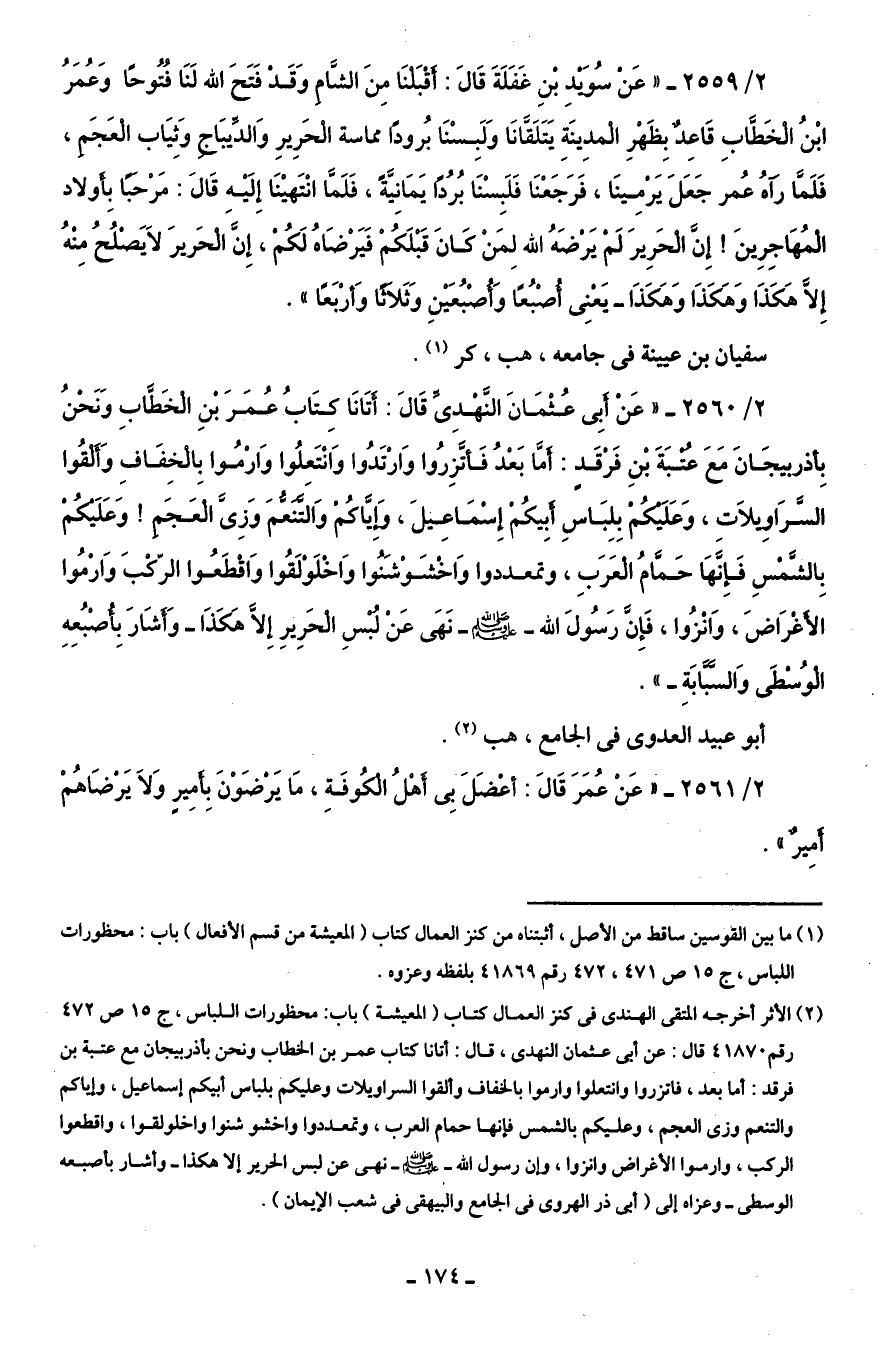 ٢/ ٢٥٥٩ ـ « عَنْ سُوَيْدِ بْنِ غَفَلَةَ قَالَ : أَقْبَلْنَا مِنَ الشَّامِ وَقَدْ فَتَحَ الله لَنَا فُتُوحًا وَعُمَرُ
ابْنُ الْخَطَّابِ قَاعِدٌ بِظَهْرِ الْمَدِينَةِ يَتَلَقَّانَا وَلَبِسْنَا بُرودًا مماسة الْحَرِيرِ وَالدِّيبَاجِ وَثِيَابِ الْعَجَمِ ،
فَلَمَّا رآهُ عُمر جَعَلَ يَرْمِينَا ، فَرَجَعْنَا فَلَبِسْنَا بُرُدًا يَمَانِيَّةً ، فَلَمَّا انْتَهَيْنَا إِلَيْهِ قَالَ : مَرْحَبًا بِأَولاد
الْمُهَاجِرِينَ ! إِنَّ الْحَرِيرَ لَمْ يَرْضَهُ الله لِمَنْ كَانَ قَبْلَكُمْ فَيَرْضَاهُ لَكُمْ ، إِنَّ الْحَرِيرَ لاَيَصْلُحُ مِنْهُ
إِلاَّ هَكَذَا وَهَكَذَا وَهَكَذَا ـ يَعْنِى أُصْبُعًا وَأُصْبُعَيْنِ وَثَلاَثًا وَأَرْبَعًا » .
سفيان بن عيينة فى جامعه ، هب ، كر (١) .
٢/ ٢٥٦٠ ـ « عَنْ أَبِى عُثْمَانَ النَّهْدِىِّ قَالَ : أَتَانَا كِتَابُ عُمَرَ بْنِ الْخَطَّابِ وَنَحْنُ
بأذربيجَانَ مَعَ عُتْبَةَ بْنِ فَرْقَدٍ : أَمَّا بَعْدُ فَأتَّزِرُوا وَارْتَدُوا وَانْتَعِلُوا وَارْمُوا بِالْخِفَافِ وَأَلْقُوا
السَّرَاوِيلاَتِ ، وَعَلَيْكُمْ بِلِبَاسِ أَبِيكُمْ إِسْمَاعِيلَ ، وَإِيَّاكُمْ وَالتَّنَعُّمَ وَزِىَّ الْعَجَمِ ! وَعَلَيْكُمْ
بِالشَّمْسِ فَإِنَّهَا حَمَّامُ الْعَرَبِ ، وتمعددوا وَاخْشَوْشَنُوا وَاخْلَوْلَقُوا وَاقْطَعُوا الرّكْبَ وَارْمُوا
الأَغْرَاضَ ، وَانْزُوا ، فَإِنَّ رَسُولَ الله ـ ﷺ ـ نَهَى عَنْ لُبْسِ الْحَرِيرِ إِلاَّ هَكَذَا ـ وَأَشَارَ بِأُصْبُعِهِ
الْوُسْطَى وَالسَّبَّابَةِ ـ » .
أبو عبيد العدوى فى الجامع ، هب (٢) .
٢/ ٢٥٦١ ـ « عَنْ عُمَرَ قَالَ : أعْضَلَ بِى أَهْلُ الْكُوفَةِ ، مَا يَرْضَوْنَ بِأَمِيرٍ وَلاَ يَرْضَاهُمْ
أَمِيرٌ » .
(١) ما بين القوسين ساقط من الأصل ، أثبتناه من كنز العمال كتاب ( المعيشة من قسم الأفعال ) باب : محظورات
اللباس ، ج ١٥ ص ٤٧١ ، ٤٧٢ رقم ٤١٨٦٩ بلفظه وعزوه .
(٢) الأثر أخرجه المتقى الهندى فى كنز العمال كتاب ( المعيشة ) باب: محظورات اللباس ، ج ١٥ ص ٤٧٢
رقم ٤١٨٧٠ قال : عن أبى عثمان النهدى ، قال : أتانا كتاب عمر بن الخطاب ونحن بأذربيجان مع عتبة بن
فرقد : أما بعد ، فاتزروا وانتعلوا وارموا بالخفاف وألقوا السراويلات وعليكم بلباس أبيكم إسماعيل ، وإياكم
والتنعم وزى العجم ، وعليكم بالشمس فإنها حمام العرب ، وتمعددوا واخشو شنوا واخلولقوا ، واقطعوا
الركب ، وارموا الأغراض وانزوا ، وإن رسول الله ـ ﷺ ـ نهى عن لبس الحرير إلا هكذا ـ وأشار بأصبعه
الوسطى ـ وعزاه إلى ( أبى ذر الهروى فى الجامع والبيهقى فى شعب الإيمان ) .
ـ ١٧٤ ـ